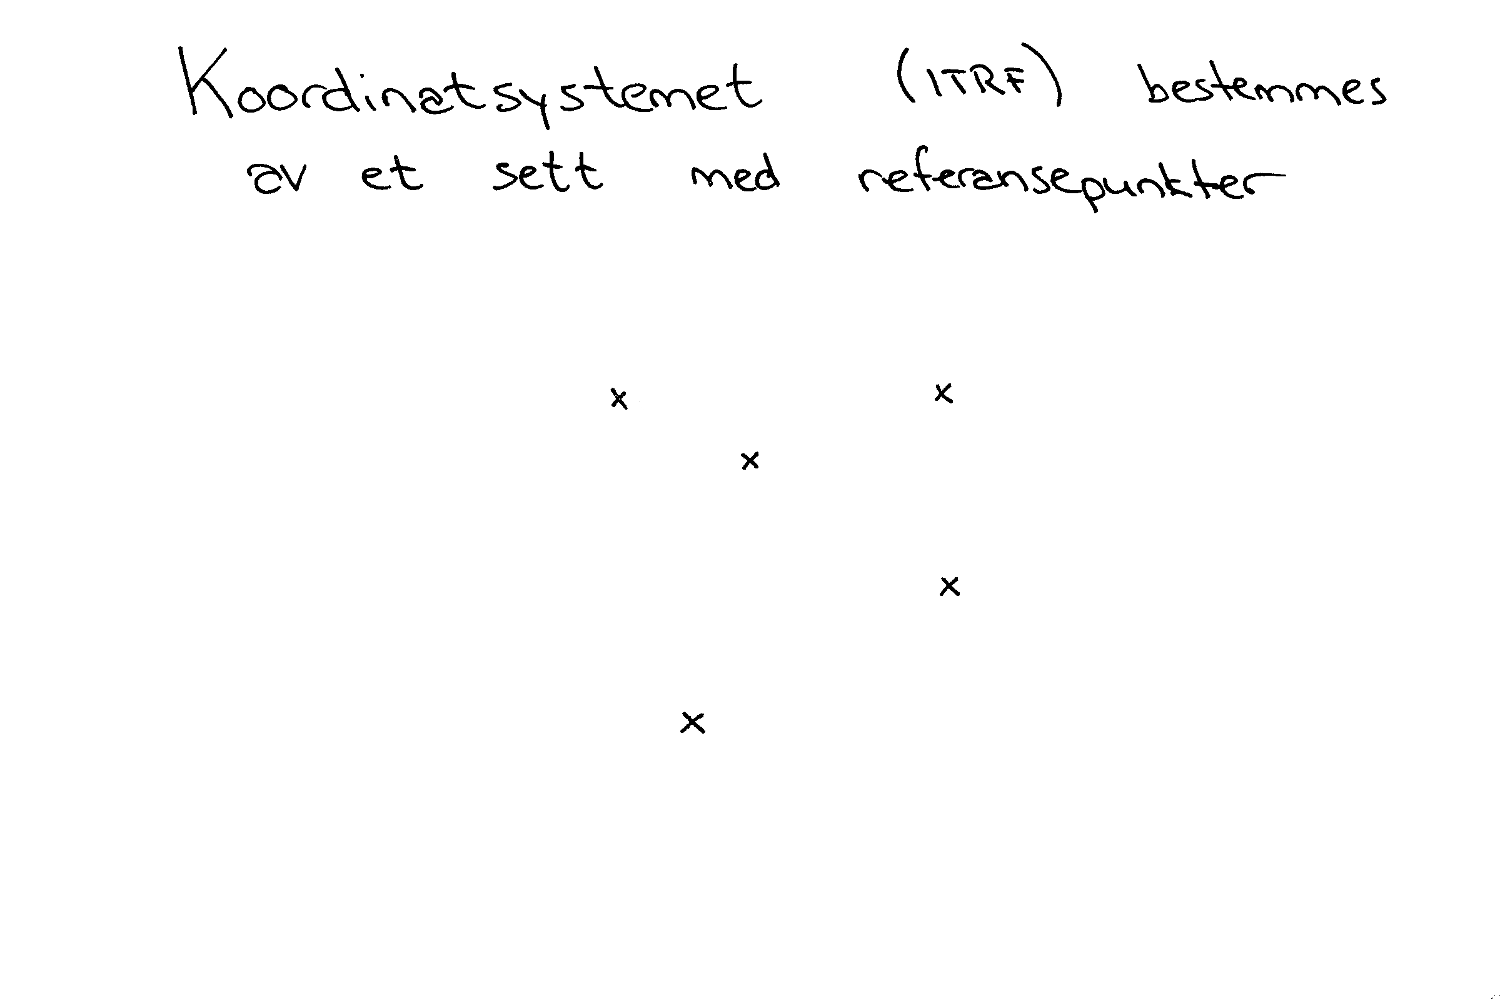 Koordinatsystemet (ITRF) bestemmes
av et sett med referansepunkter